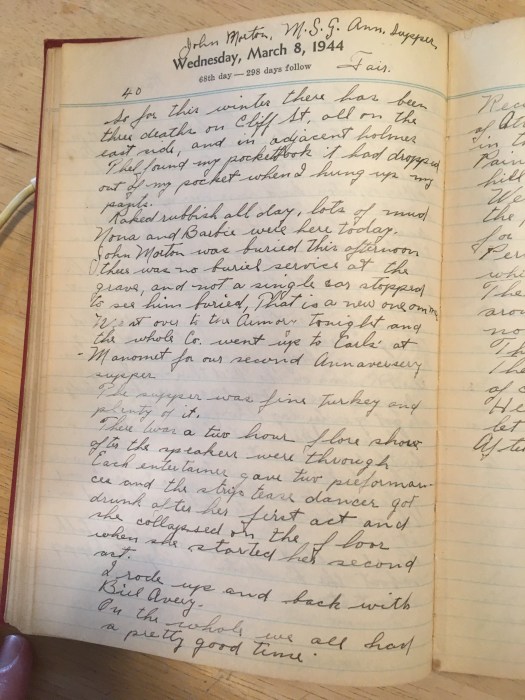 John Morton, M.S.G. Ann. Supper.
Wednesday, March 8, 1944
68th day — 298 days follow
Fair.
40
So far this winter there has been
three deaths on Cliff St, all on the
east side, and in adjacent homes
Phel found my pocketbook it had dropped
out of my pocket when I hung up my
pants.
Raked rubbish all day, lots of mud
Nona and Barbie were here today.
John Morton was buried this afternoon
there was no buriel service at the
grave, and not a single car stopped
to see him buried, That is a new one on me
Went over to the Armory tonight and
the whole Co. went up to Earls' at
- Manomet for our second Annaversery
supper
The supper was fine Turkey and
plenty of it.
There was a two hour flore show
after the speakers were through
Each entertainer gave two preforman-
ces and the strip tease dancer got
drunk after her first act and
she collapssed on the floor
when she started her second
act.
I rode up and back with
Bill Avery.
On the whole we all had
a pretty good time.
Rec
of
in
Pain
hill
We
the
for
Per
who
The
arou
no
Th
the
of c
He
let
Afte